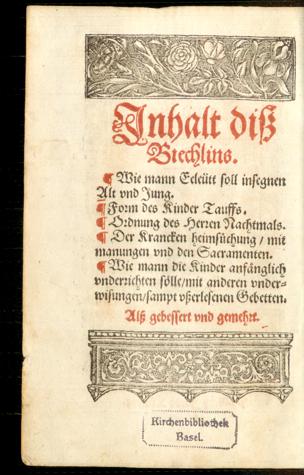 Inhalt diß
Biechlins.
¶ Wie mann Eeleütt soll insegnen
Alt vnd Jung.
¶ Form des Kinder Tauffs.
¶ Ordnung des Herren Nachtmals.
¶ Der Krancken heimsůchung / mit
manungen vnd den Sacramenten.
¶ Wie mann die Kinder anfänglich
vnderrichten sölle/mit anderen vnder-
wisungen/sampt vßerlesenen Gebetten.
Alß gebessert vnd gemehrt.
Kirchenbibliothek
Basel.